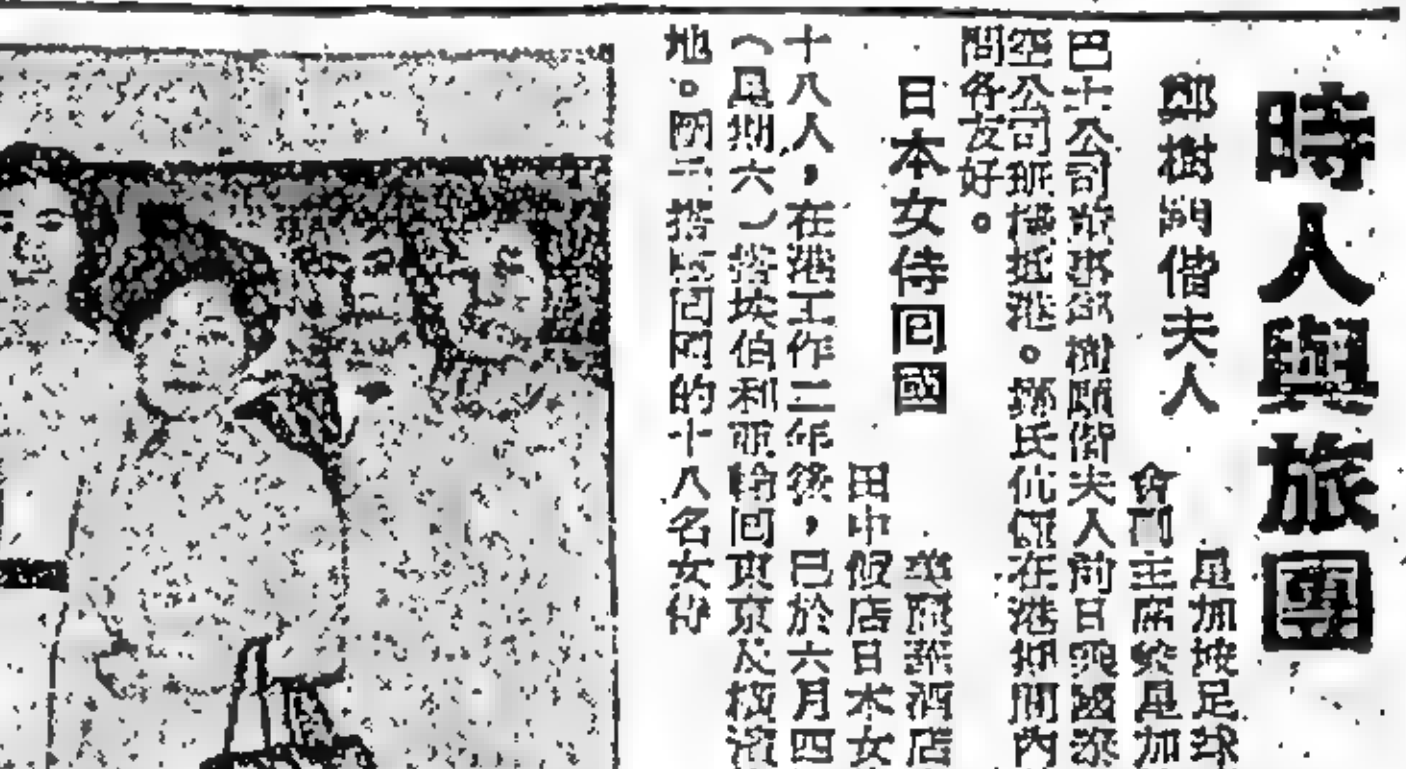 時人與旅團
鄧樹 偕夫人
星加坡足球
會副主席 星加
巴士公司 偕夫人前日 國泰
空公司班機抵港。 氏伉儷在港 間內
問各友好。
日本女侍回國
美麗華酒店
田中飯店日本女
十八人，在港工作二年後，已於六月四
（星期六）搭埃伯利 輪回東京及橫濱
地。圖示搭 回國的十八名女侍